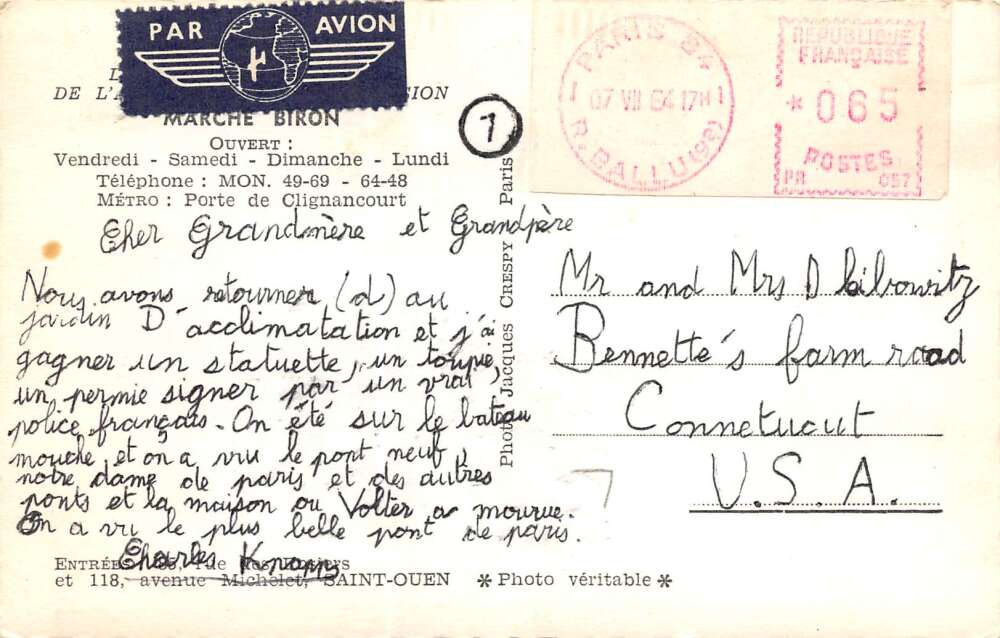 PAR AVION
DE L'A
SION
MARCHE BIRON
OUVERT :
Vendredi - Samedi - Dimanche - Lundi
Téléphone : MON. 49-69 - 64-48
MÉTRO : Porte de Clignancourt
1
PARIS 9e
07 VII 64 17H
R. BALLU (9e)
REPUBLIQUE
FRANÇAISE
* 065
POSTES
PR 057
Cher Grandmère et Grandpère
Nous avons retourner (d) au
jardin D'acclimatation et j'ai
gagner un statuette, un toupie,
un permie signer par un vrai
police français. On été sur le bateau
mouche et on a vu le pont neuf,
notre dame de paris et des autres
ponts et la maison ou Volter a mourue.
On a vu le plus belle pont de paris.
Charles Knapp
Mr and Mrs D Libowitz
Bennette's farm road
Connetucut
U.S.A.
Photo Jacques CRESPY Paris
ENTRÉES
et 118, avenue Michelet, SAINT-OUEN
* Photo véritable *